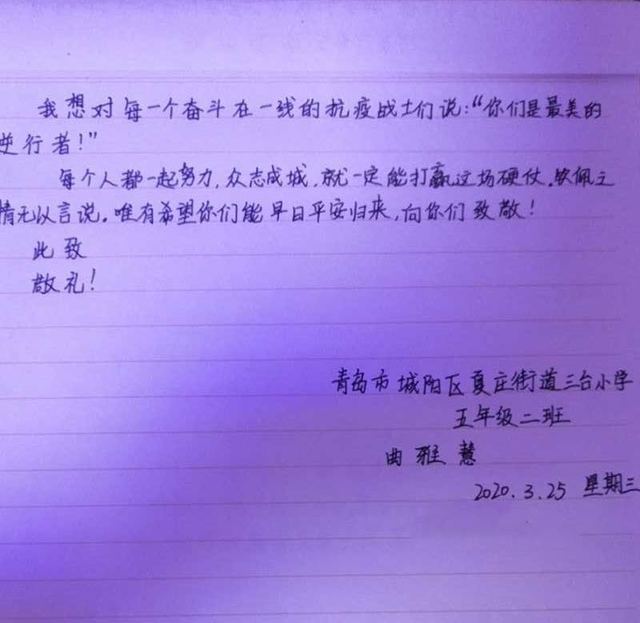 我想对每一个奋斗在一线的抗疫战士们说:“你们是最美的
逆行者!”
每个人都一起努力,众志成城,就一定能打赢这场硬仗。钦佩之
情无以言说。唯有希望你们能早日平安归来,向你们致敬!
此致
敬礼!
青岛市城阳区夏庄街道三台小学
五年级二班
曲雅慧
2020.3.25 星期三